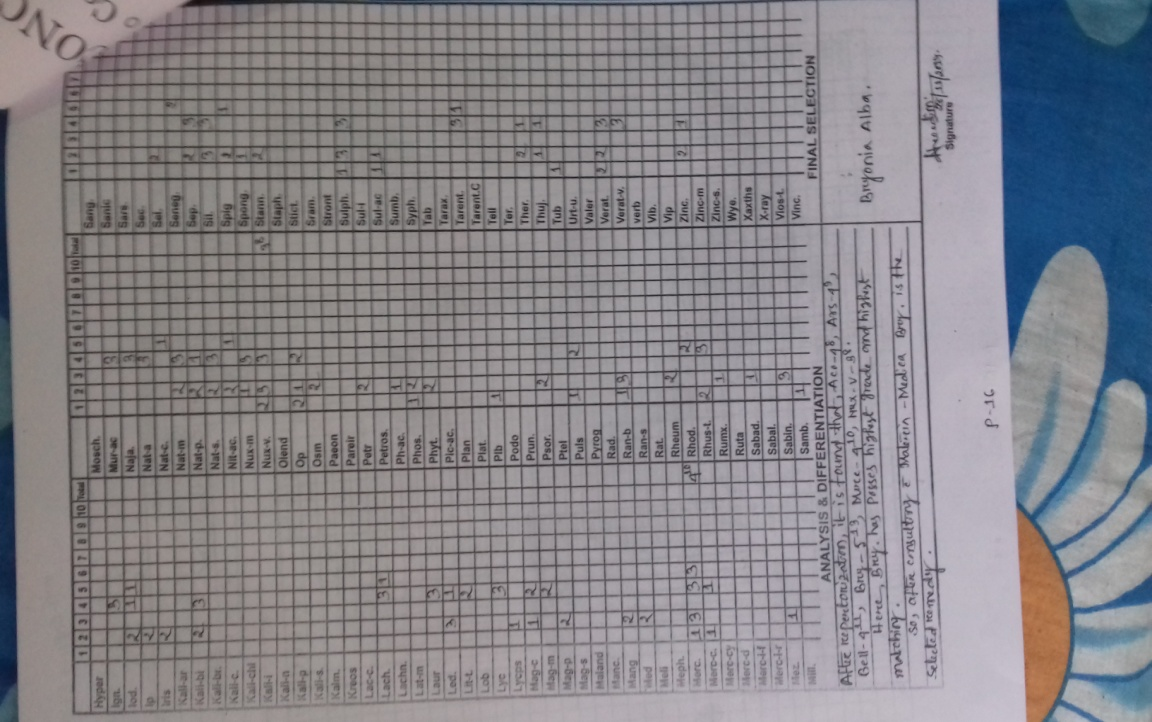 1 2 3 4 5 6 7 8 9 10 Total
Hyper
Ign. 3
Iod. 2 1 1
Ip 2
Iris 2
Kali-ar
Kali-bi 2 3
Kali-br.
Kali-c.
Kali-chl
Kali-i
Kali-n
Kali-p
Kali-s.
Kalm.
Kreos
Lac-c.
Lach. 3 1
Lachn.
Lat-m
Laur 3
Led. 3 1
Lil-t. 2
Lob
Lyc 3
Lycps 1
Mag-c 1 2
Mag-m 2
Mag-p 2
Mag-s
Maland
Manc.
Mang 2
Med 2
Meli
Meph.
Merc. 1 3 3 3 4¹⁰
Merc-c. 1 1
Merc-cy
Merc-d
Merc-i-f
Merc-i-r
Mez. 1
Mill.
1 2 3 4 5 6 7 8 9 10 Total
Mosch.
Mur-ac 3
Naja. 3
Nat-a 3
Nat-c. 1
Nat-m 2 3
Nat-p. 2 1
Nat-s. 2 3
Nit-ac. 2 1
Nux-m 1 3
Nux-v. 2 3 3 3⁸
Olend
Op 2 1 2
Osm 2
Paeon
Pareir
Petr 2
Petros.
Ph-ac. 1
Phos. 1 2
Phyt. 2
Pic-ac.
Plan
Plat.
Plb 1
Podo
Prun.
Psor. 2
Ptel
Puls 1 2
Pyrog
Rad.
Ran-b 1 3
Ran-s
Rat.
Rheum 2
Rhod. 2
Rhus-t. 2 3
Rumx. 1
Ruta
Sabad. 1
Sabal.
Sabin. 3
Samb. 1
1 2 3 4 5 6 7
Sang.
Sanic
Sars.
Sec.
Sel. 2
Seneg.
Sep. 2 3
Sil. 3 3
Spig 2 1
Spong. 1
Stann. 2
Staph.
Stict.
Stram.
Stront
Sulph. 1 3 3
Sul-i
Sul-ac 1
Sumb.
Syph.
Tab
Tarax.
Tarent. 3 1
Tarent.C
Tell
Ter.
Ther. 2 1
Thuj. 1 1
Tub 1
Urt-u.
Valer
Verat. 2 2 3
Verat-v. 3
verb
Vib.
Vip
Zinc. 2 1
Zinc-m
Zinc-s.
Wye.
Xaxths
X-ray
Vios-t.
Vinc.
ANALYSIS & DIFFERENTIATION
After repertorization, it is found that, Aco-4⁸, Ars-4⁹,
Bell-4¹¹, Bry-5¹³, Merc-4¹⁰, Nux-v-3⁸.
Hence, Bry. has posses highest grade and highest
matching.
So, after consulting c̄ Materia-Medica Bry. is the
selected remedy.
FINAL SELECTION
Bryonia Alba.
Signature
P-16